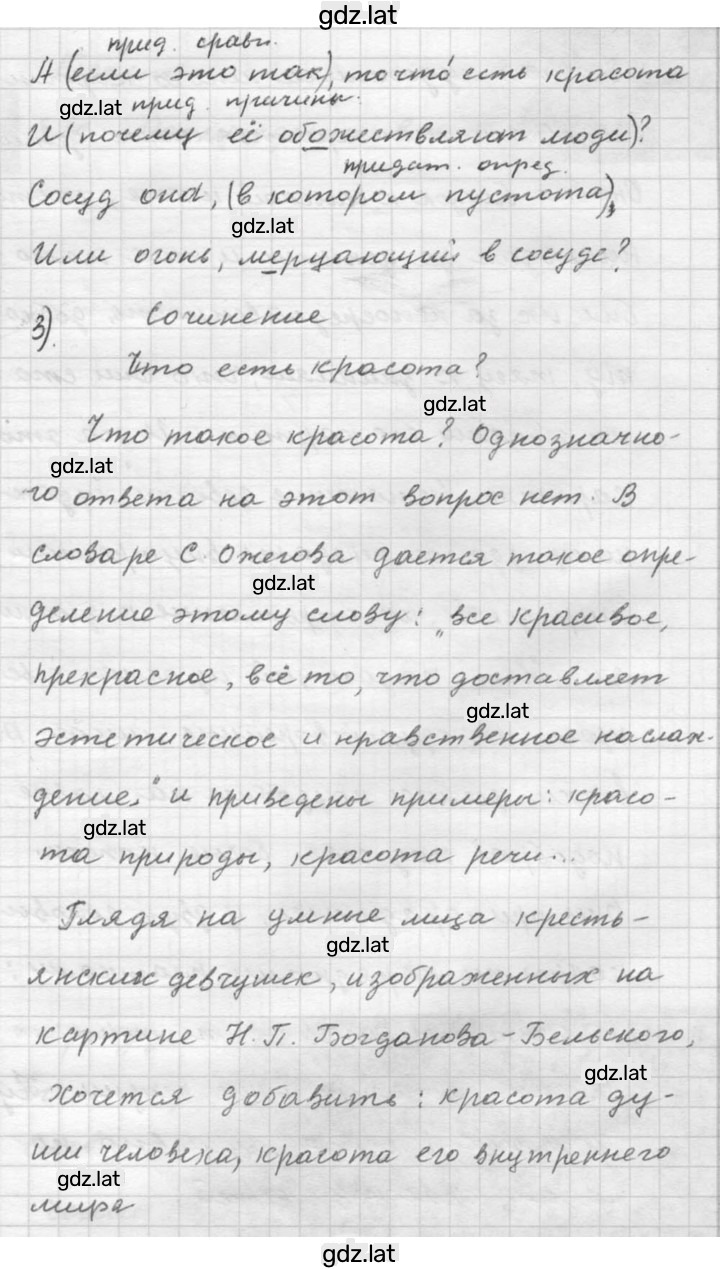 gdz.lat
прид. сравн.
А (если это так), то что́ есть красота
gdz.lat прид. причины.
И (почему её обожествляют люди)?
придат. опред.
Сосуд она, (в котором пустота),
gdz.lat
Или огонь, мерцающий в сосуде?
3). Сочинение
Что есть красота?
gdz.lat
Что такое красота? Однозначно-
gdz.lat
го ответа на этот вопрос нет. В
словаре С. Ожегова дается такое опре-
gdz.lat
деление этому слову: „все красивое,
прекрасное, всё то, что доставляет
gdz.lat
эстетическое и нравственное наслаж-
дение." и приведены примеры: красо-
gdz.lat
та природы, красота речи...
Глядя на умные лица кресть-
gdz.lat
янских девчушек, изображенных на
картине Н.П. Богданова-Бельского,
gdz.lat
хочется добавить: красота ду-
ши человека, красота его внутреннего
gdz.lat
мира
gdz.lat